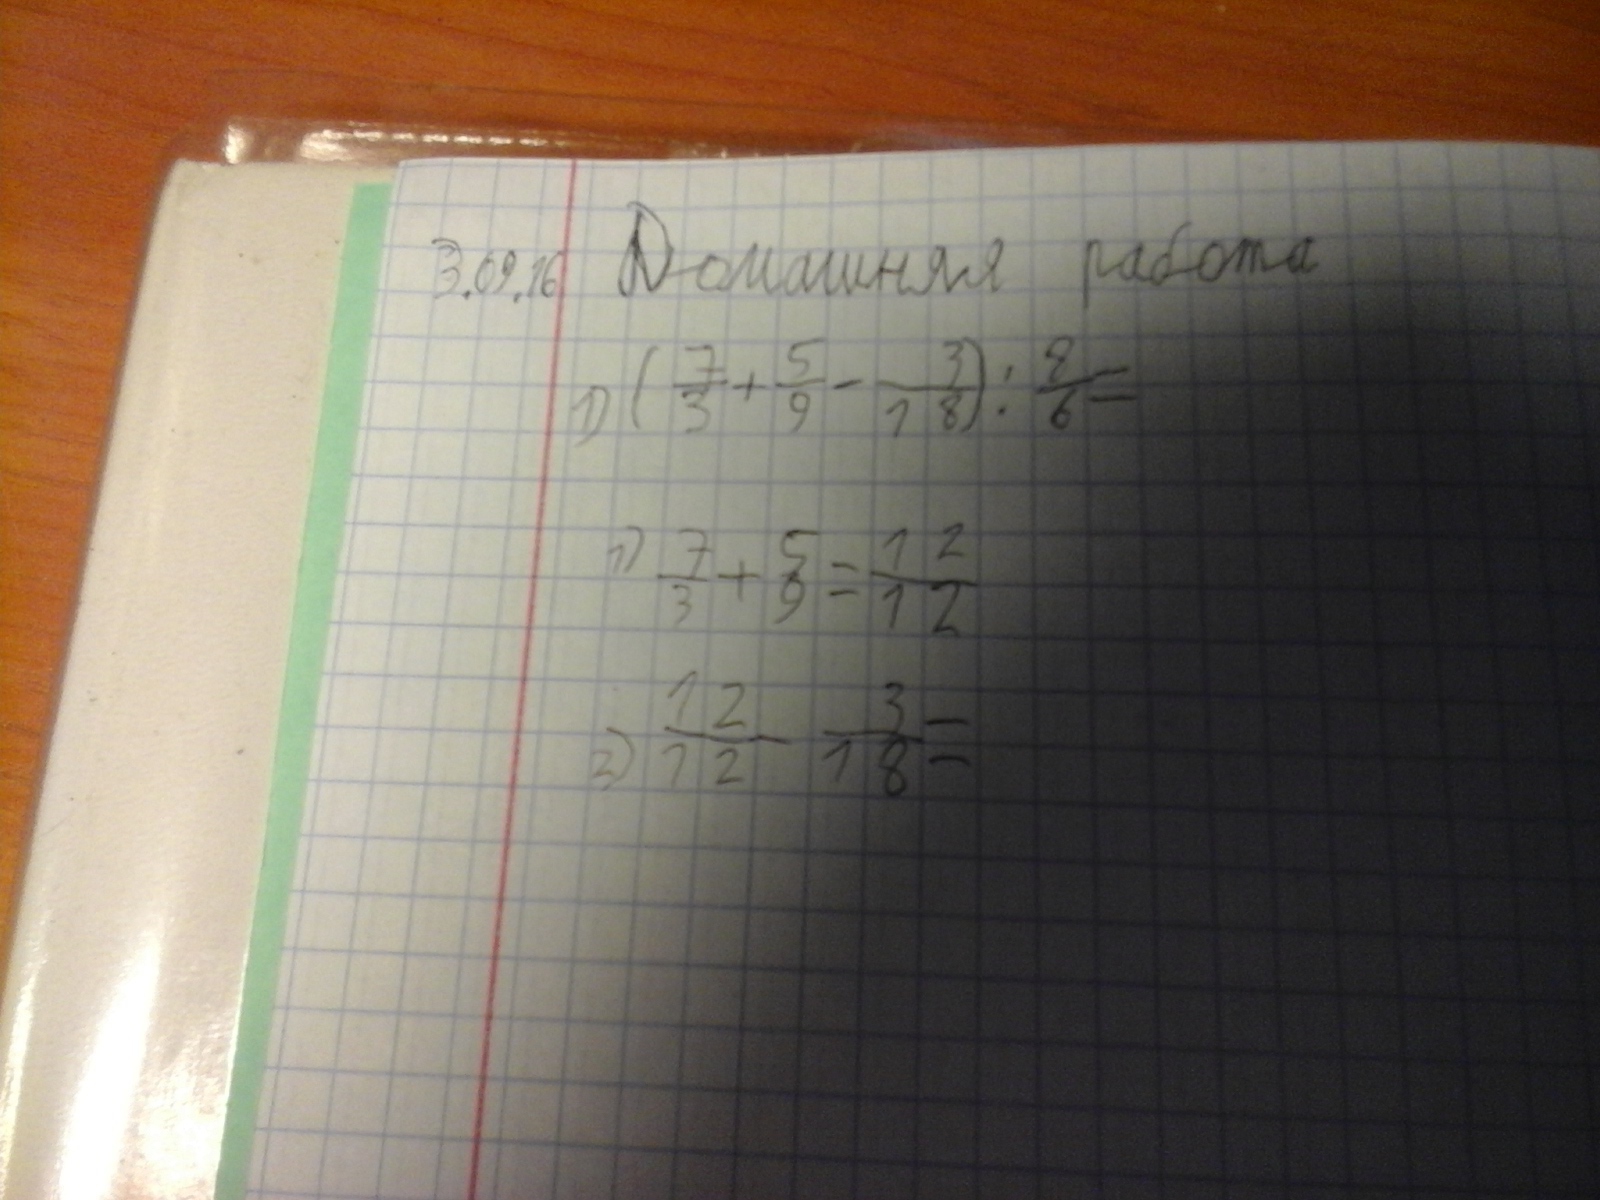 3.09.16 Домашняя работа
1) (7/3 + 5/9 - 3/18) : 8/6 =
1) 7/3 + 5/9 = 12/12
2) 12/12 - 3/18 =